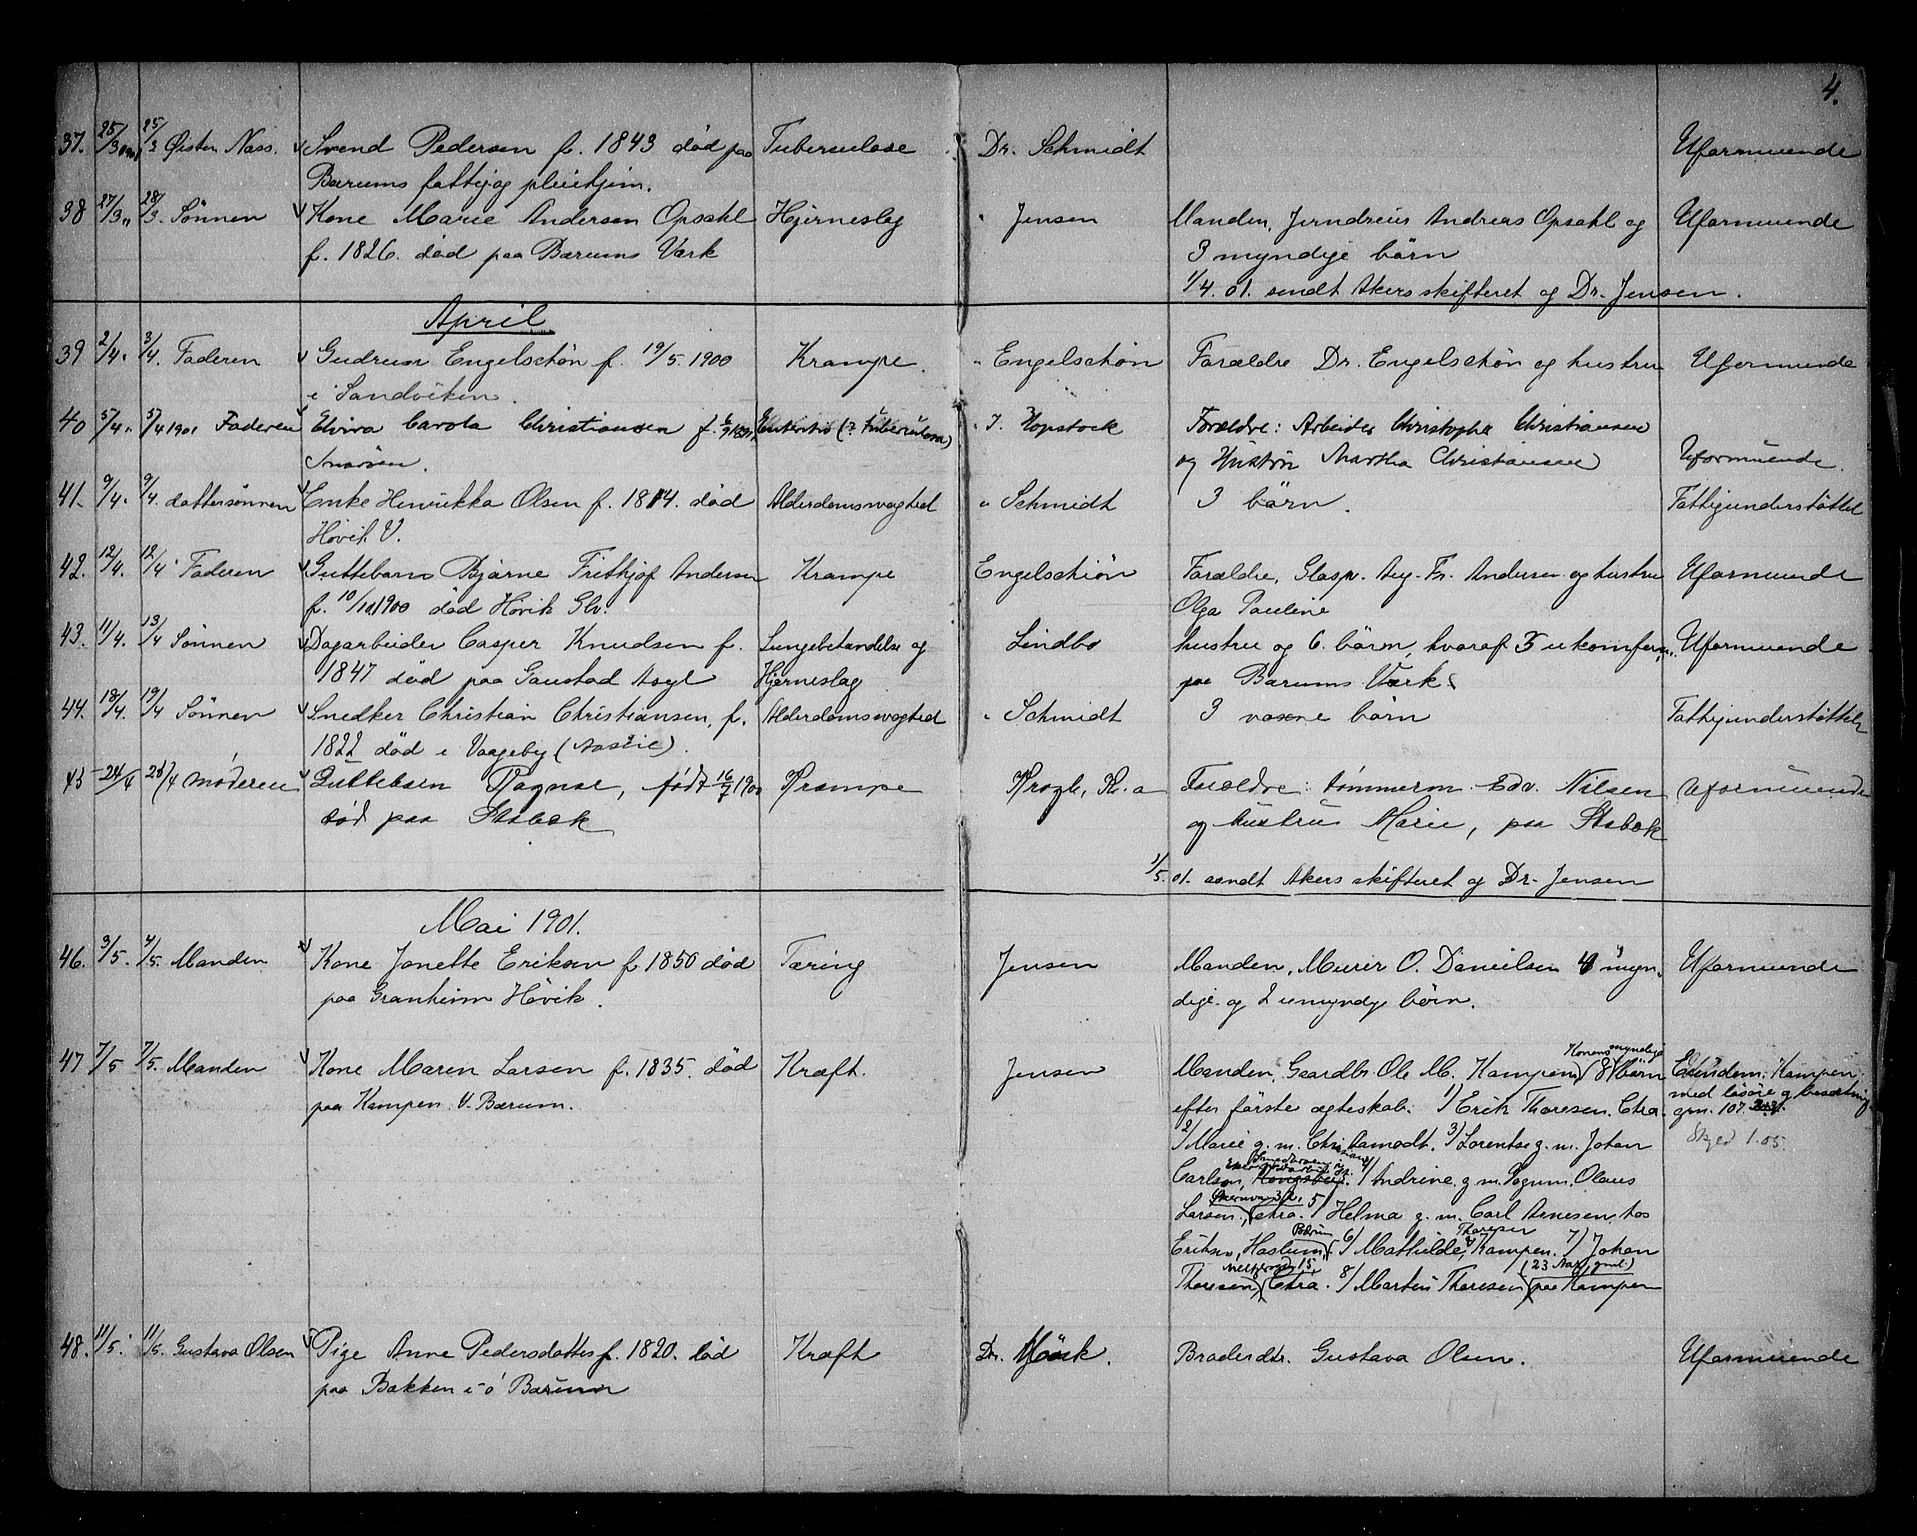 4.
37. 25/3 01 25/3 Øisten Næss. Svend Pedersen f. 1843 død paa Tuberculose Dr. Schmidt Uformuende
Bærums fattig og pleiehjem.
38 27/3 " 28/3. Sønnen Kone Marie Andersen Opsahl Hjerneslag " Jensen Manden, Jerndreier Andreas Opsahl og Uformuende
f. 1826. død paa Bærums Værk 3 myndige børn
1/4. 01. sendt Akers skifteret og Dr. Jensen.
April
39 2/4. 3/4. Faderen Gudrun Engelschøn f. 19/5. 1900 Krampe. " Engelschøn Forældre Dr. Engelschøn og hustru Uformuende
i Sandviken.
40 5/4. 5/4 1901 Faderen Elvira Carola Christiansen f. Enteritis (? Tuberculosa) " J. Hopstock Forældre: Arbeider Christopher Christiansen
Snarøen. og Hustru Martha Christiansen Uformuende.
41. 9/4. 9/4. dattersønnen Enke Henrikka Olsen f. 1814. død Alderdomssvaghed " Schmidt 3 børn. Fattigunderstøttet
Høvik V.
42. 12/4. 12/4 Faderen Guttebarn Bjarne Frithjof Andersen Krampe Engelschiøn Forældre, Glasp. Aug. Fr. Andersen og hustru Uformuende
f. 10/10 1900 død Høvik Glv. Olga Pauline
43. 11/4. 13/4 Sønnen Dagarbeider Casper Knudsen f. Lungebetændelse og Lindbo hustru og 6. børn, hvoraf 5 ukonfirm. Uformuende
1847 død paa Gaustad Asyl Hjerneslag paa Bærums Værk
44. 18/4. 19/4 Sønnen Snedker Christian Christiansen, f. Alderdomssvaghed " Schmidt 3 voxne børn Fattigunderstøttet
1822 død i Vaageby
45 24/4 Moderen Guttebarn Ragnar, født 16/7 1900 Krampe Krogh, Kr.a Forældre: tømmerm. Edv. Nilsen Uformuende
død paa Stabæk og hustru Marie, paa Stabæk
1/5. 01. sendt Akers skifteret og Dr. Jensen
Mai 1901.
46. 3/5. 4/5. Manden Kone Janette Eriksen f. 1850 død Tæring Jensen Manden, Murer O. Danielsen 4 myn- Uformuende
paa Granheim Høvik. dige og 2 umyndige børn.
47 7/5 7/5. Manden Kone Maren Larsen f. 1835. død Kræft. Jensen Manden, Gaardbr. Ole M. Kampen, Konens 8 myndige børn Eiendom: Kampen
paa Kampen V. Bærum. efter første ægteskab. 1/ Erik Thoresen, Chra. med løsøre og besætning
gm. 107
2/ Marie g. m. Chr. Aamodt. 3/ Lorentse g. m. Johan Skjed 1.05.
Carlson, 4/ Andrine g. m. Olaus
Larsen, Chra. 5/ Helma g. m. Carl Arnesen, hos
Eriksen, Haslum, Bærum 6/ Mathilde Thoresen, Kampen. 7/ Johan
Thoresen, 15, Chra. 8/ Martin Thoresen (23 Aar gml.) paa Kampen
48. 11/5. 11/5. Gustava Olsen Pige Anne Pedersdatter f. 1820. død Kræft Dr. Mjøsk. Broderdtr. Gustava Olsen. Uformuende
paa Bakken i Ø Bærum